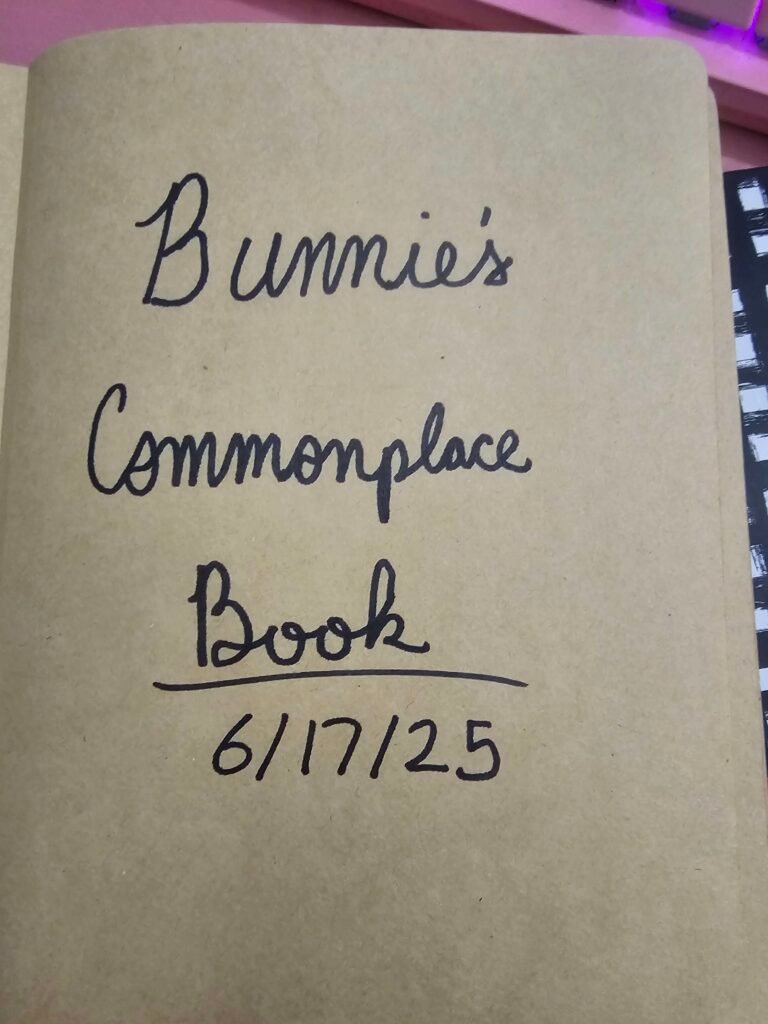 Bunnie's
Commonplace
Book
6/17/25